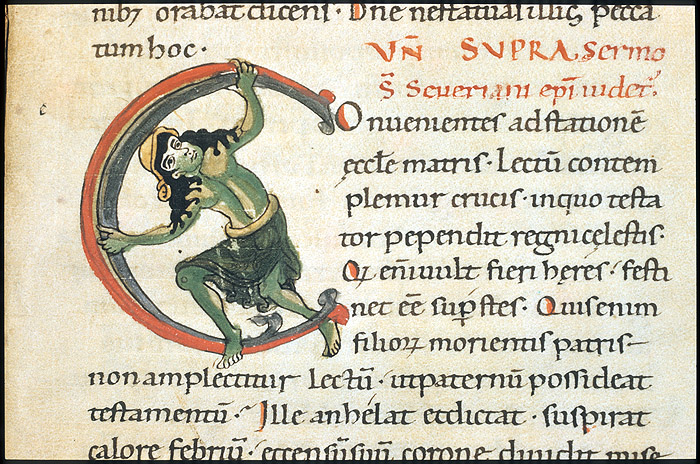 nibꝫ orabat dicens. Dñe ne statuas illis pecca
tum hoc.
UÑ SUPRA Sermo
S̄ Seueriani ep̄i uidet᷑.
Conuenientes ad stationē
ęccl̄e matris. Lectū contem
plemur crucis. in quo testa
tor pependit regni cęlestis.
Qꝛ eñi uult fieri hęres. festi
net eē sup̄stes. Quis enim
filioꝝ morientis patris
non amplectitur lectū. ut paternū possideat
testamentū. Ille anhelat et dictat. suspirat
calore febriū.